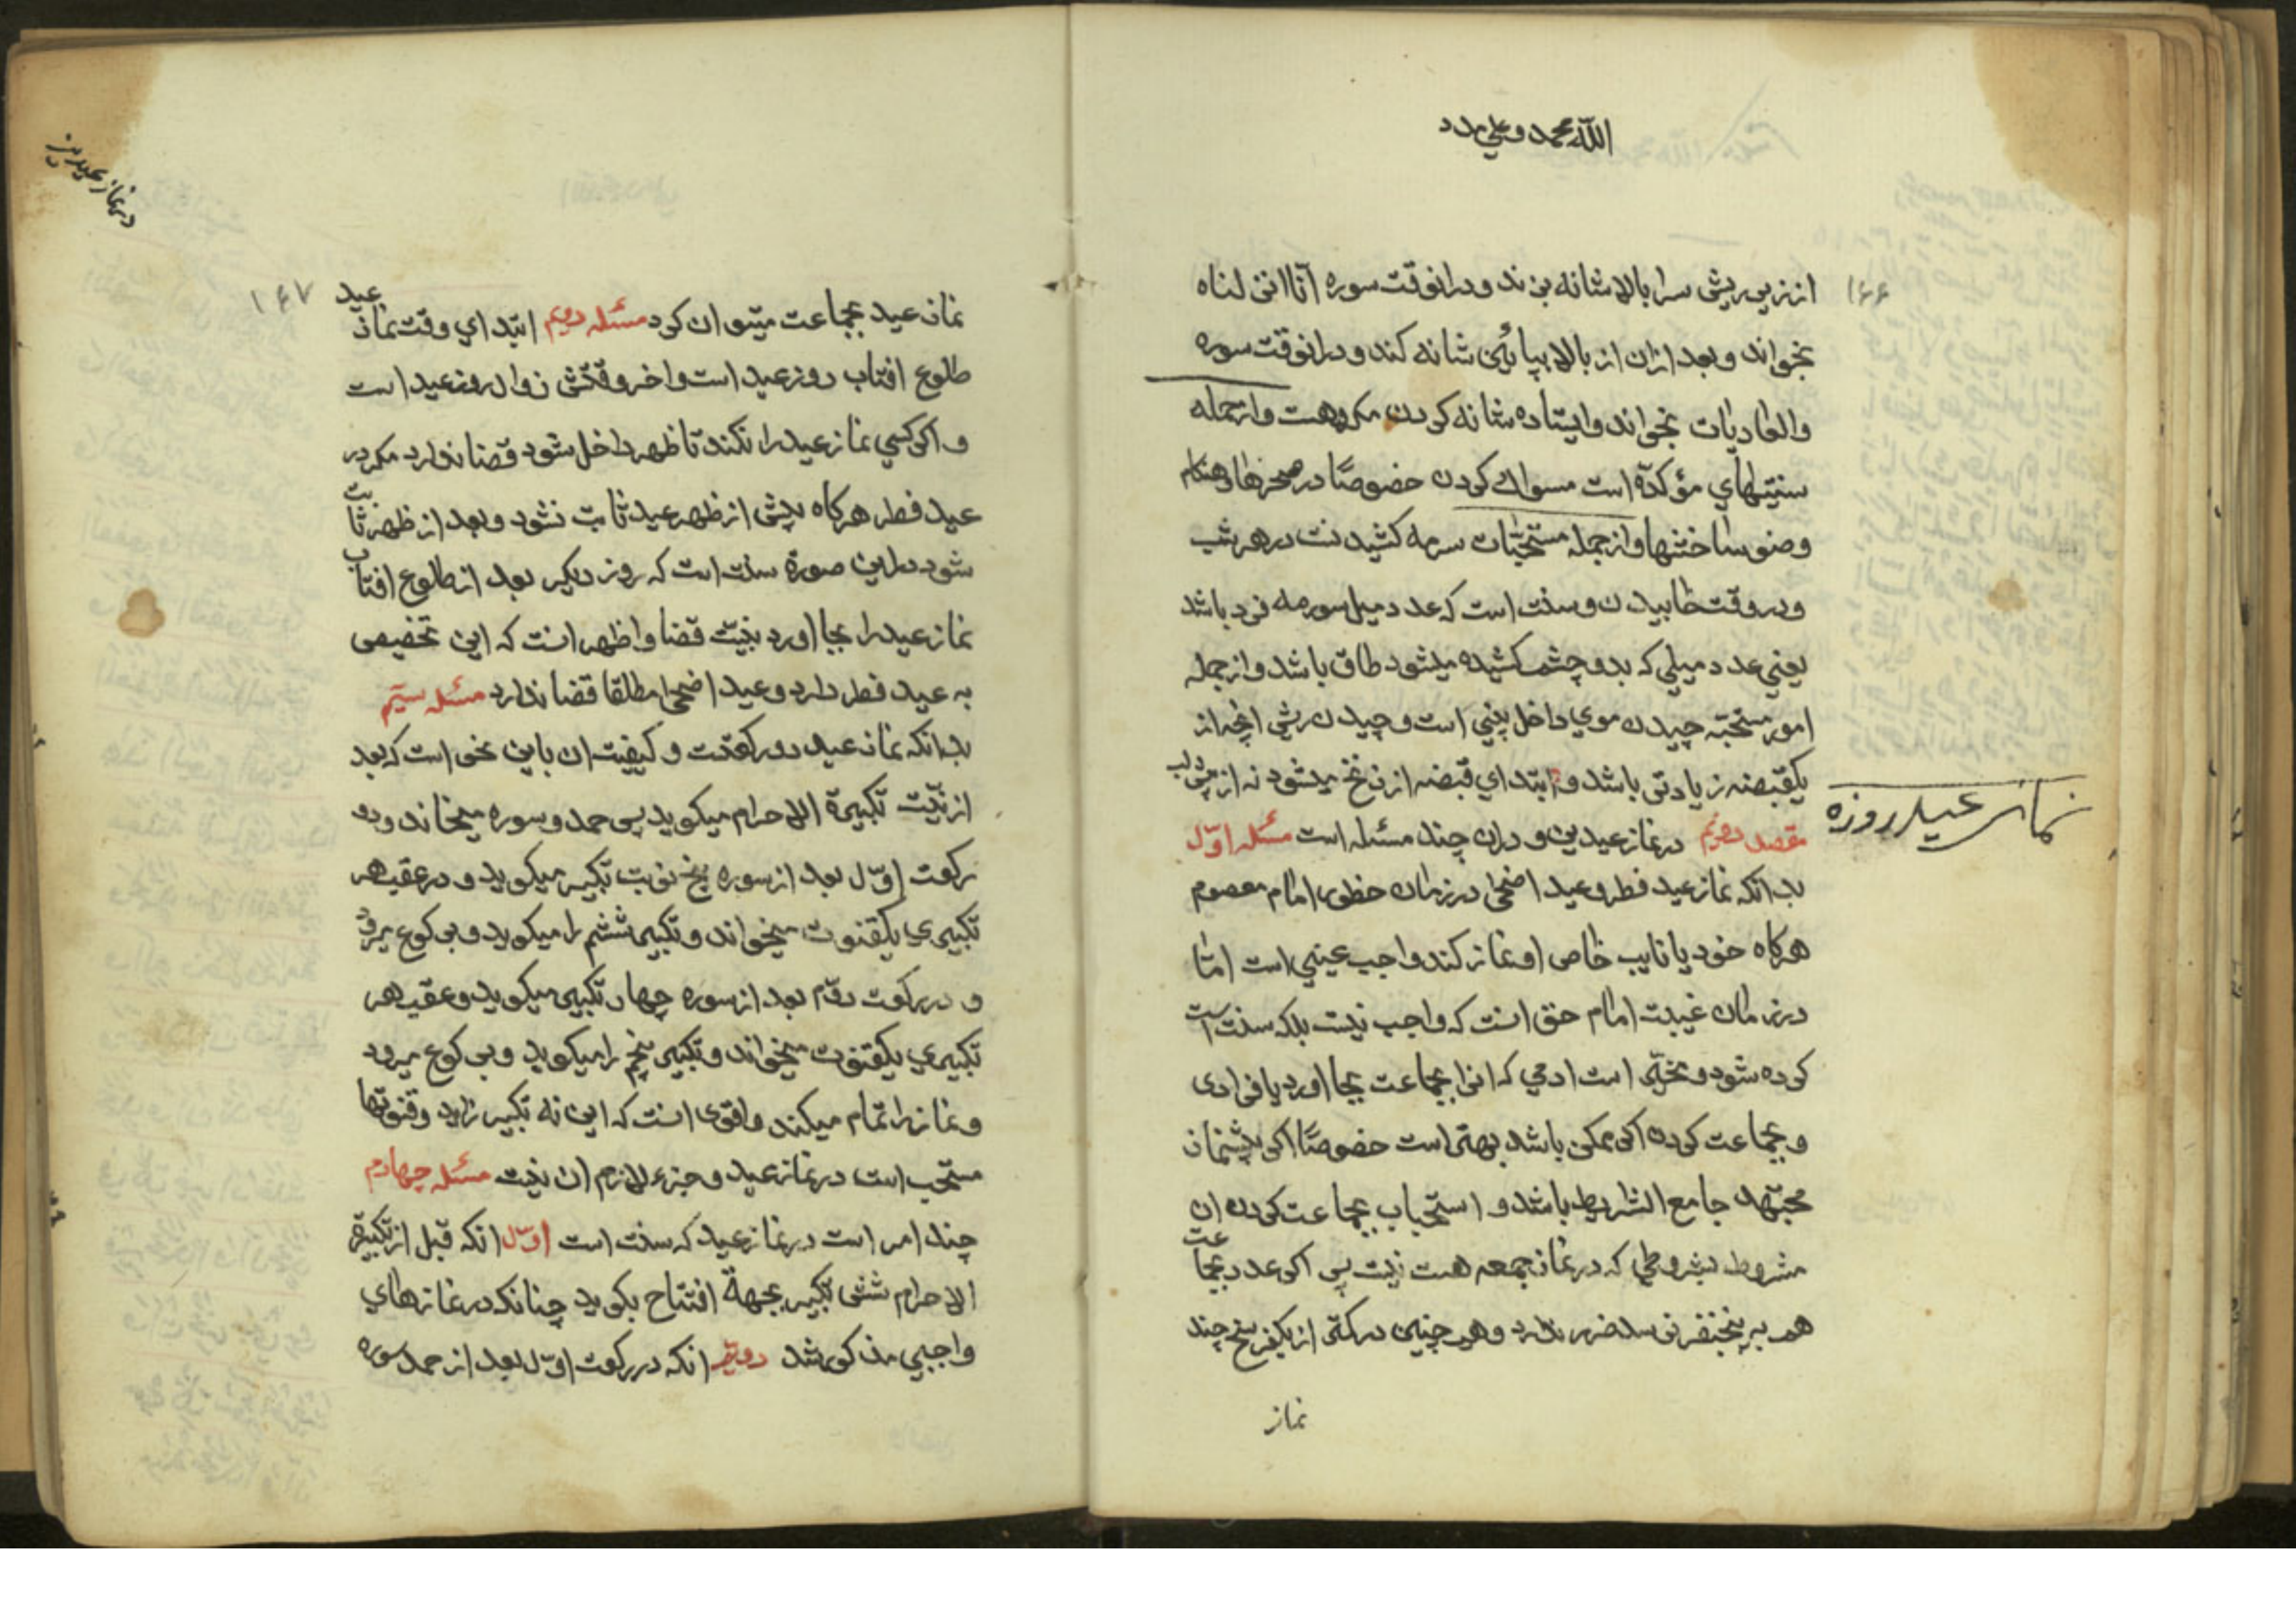 الله محمد و علي مدد
۱۶۶
از زیر ریش سرا بالا شانه بزند و در انوقت سوره انا انزلناه
بخواند و بعد ازان از بالا بپائین شانه کند و در انوقت سوره
والعادیات بخواند و ایستاده شانه کردن مکروهست و ازجمله
سنتیهاي مؤکده است مسواک کردن خصوصًا در سحرها و هنکام
وضو ساختنها و از جمله مستحبّات سرمه کشیدنست در هر شب
و در وقت خابیدن و سنت است که عدد میل سورمه فرد باشد
یعني عدد میلي که بدو چشم کشیده میشود طاق باشد و از جمله
امور مستحبّه چیدن موي داخل بیني است و چیدن ریش انچه از
یکقبضه زیادتی باشد و ابتداي قبضه از زنخ میشود نه از زیر لب
مقصد دویّم در نماز عیدین و دران چند مسئله است مسئله اوّل
نماز عید روزه
بدانکه نماز عید فطر و عید اضحٰی در زمان حظور امام معصوم
هرکاه خود یا نایب خاص او نماز کند واجب عیني است امّا
در زمان غیبت امام حق انست که واجب نیست بلکه سنت است
کرده شود و مخیّر است ادمي که انرا بجماعت بجا اورد یا فرادی
و بجماعت کردن اکر ممکن باشد بهتر است خصوصًا اکر پیشنماز
مجتهد جامع الشرایط باشد و استحباب بجماعت کردن ان
مشروط بشروطي که در نماز جمعه هست نیست پس اکر عدد جماعت
هم به پنجنفر نرسد ضرر ندارد و هم چنین در کمتر از یکفرسخ چند
نماز
در نماز عیدین
۱۶۷
نماز عید بجماعت میتوان کرد مسئله دویّم ابتداي وقت نماز عید
طلوع افتاب روز عید است و اخر وقتش زوال روز عید است
و اکر کسي نماز عید را نکند تا ظهر داخل شود قضا ندارد مکر در
عید فطر هرکاه پیش از ظهر عید ثابت نشود و بعد از ظهر ثابت
شود در این صورة سنت است که روز دیکر بعد از طلوع افتاب
نماز عید را بجا اورد بنیّت قضا و اظهر انست که این تخصیصی
به عید فطر دارد و عید اضحٰی مطلقا قضا ندارد مسئله سیّم
بدانکه نماز عید دو رکعتست و کیفیت ان باین نحو است که بعد
از نیّت تکبیرة الاحرام میکوید پس حمد و سوره میخاند و در
رکعت اوّل بعد از سوره پنج نوبت تکبیر میکوید و در عقب هر
تکبیري یکقنوت میخواند و تکبیر ششم را میکوید و برکوع میرود
و در رکعت دوّم بعد از سوره چهار تکبیر میکوید و عقب هر
تکبیري یکقنوت میخواند و تکبیر پنجم را میکوید و برکوع میرود
و نماز را تمام میکند و اقوی انست که این نه تکبیر زاید و قنوتها
مستحب است در نماز عید و جزء لازم ان نیست مسئله چهارم
چند امر است در نماز عید که سنت است اوّل انکه قبل از تکبیرة
الاحرام شش تکبیر بجهة افتتاح بکوید چنانکه در نمازهاي
واجبي مذکور شد دویّم انکه در رکعت اوّل بعد از حمد سوره